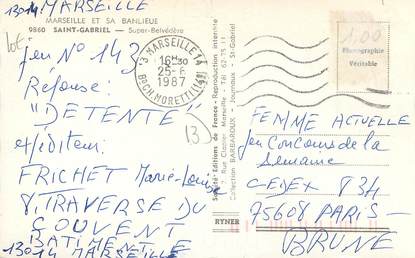 13014 MARSEILLE
MARSEILLE ET SA BANLIEUE
9860 SAINT-GABRIEL — Super-Belvédère
jeu N° 143
Réponse:
"DETENTE"
expéditeur:
FRICHET Marie-Louise
TRAVERSE DU
COUVENT
BATIMENT E
13014 MARSEILLE
13 MARSEILLE 14
16H30
25-6
1987
BD CH. MORETTI (13)
13
Société Editions de France - Reproduction interdite
Rue Clapier Marseille
Collection BARBAROUX - Journaux - St-Gabriel
RYNER
1,00
Photographie
Véritable
FEMME ACTUELLE
jeu Concours de la
Semaine
CEDEX 834
75608 PARIS-
BRUNE